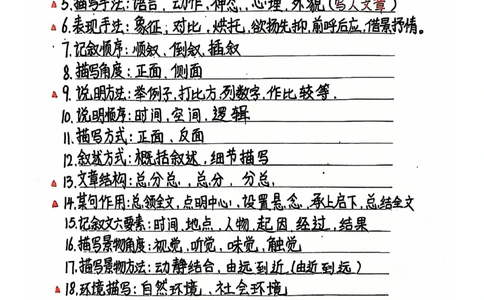 △5.描写手法:语言,动作,神态,心理,外貌(写人文章)
△6.表现手法:象征,对比,烘托,欲扬先抑,前呼后应,借景抒情。
7.记叙顺序:顺叙、倒叙,插叙
8.描写角度:正面、侧面
△9.说明方法:举例子,打比方,列数字,作比较等.
10.说明顺序:时间,空间,逻辑
11.描写方式:正面、反面
12.叙述方式:概括叙述,细节描写
△13.文章结构:总分总,总分,分总,
△14.某句作用:总领全文,点明中心,设置悬念,承上启下,总结全文
15.记叙文六要素:时间,地点,人物,起因,经过,结果
16.描写景物角度:视觉,听觉,味觉,触觉
17.描写景物方法:动静结合,由远到近,(由近到远)
△18.环境描写:自然环境、社会环境